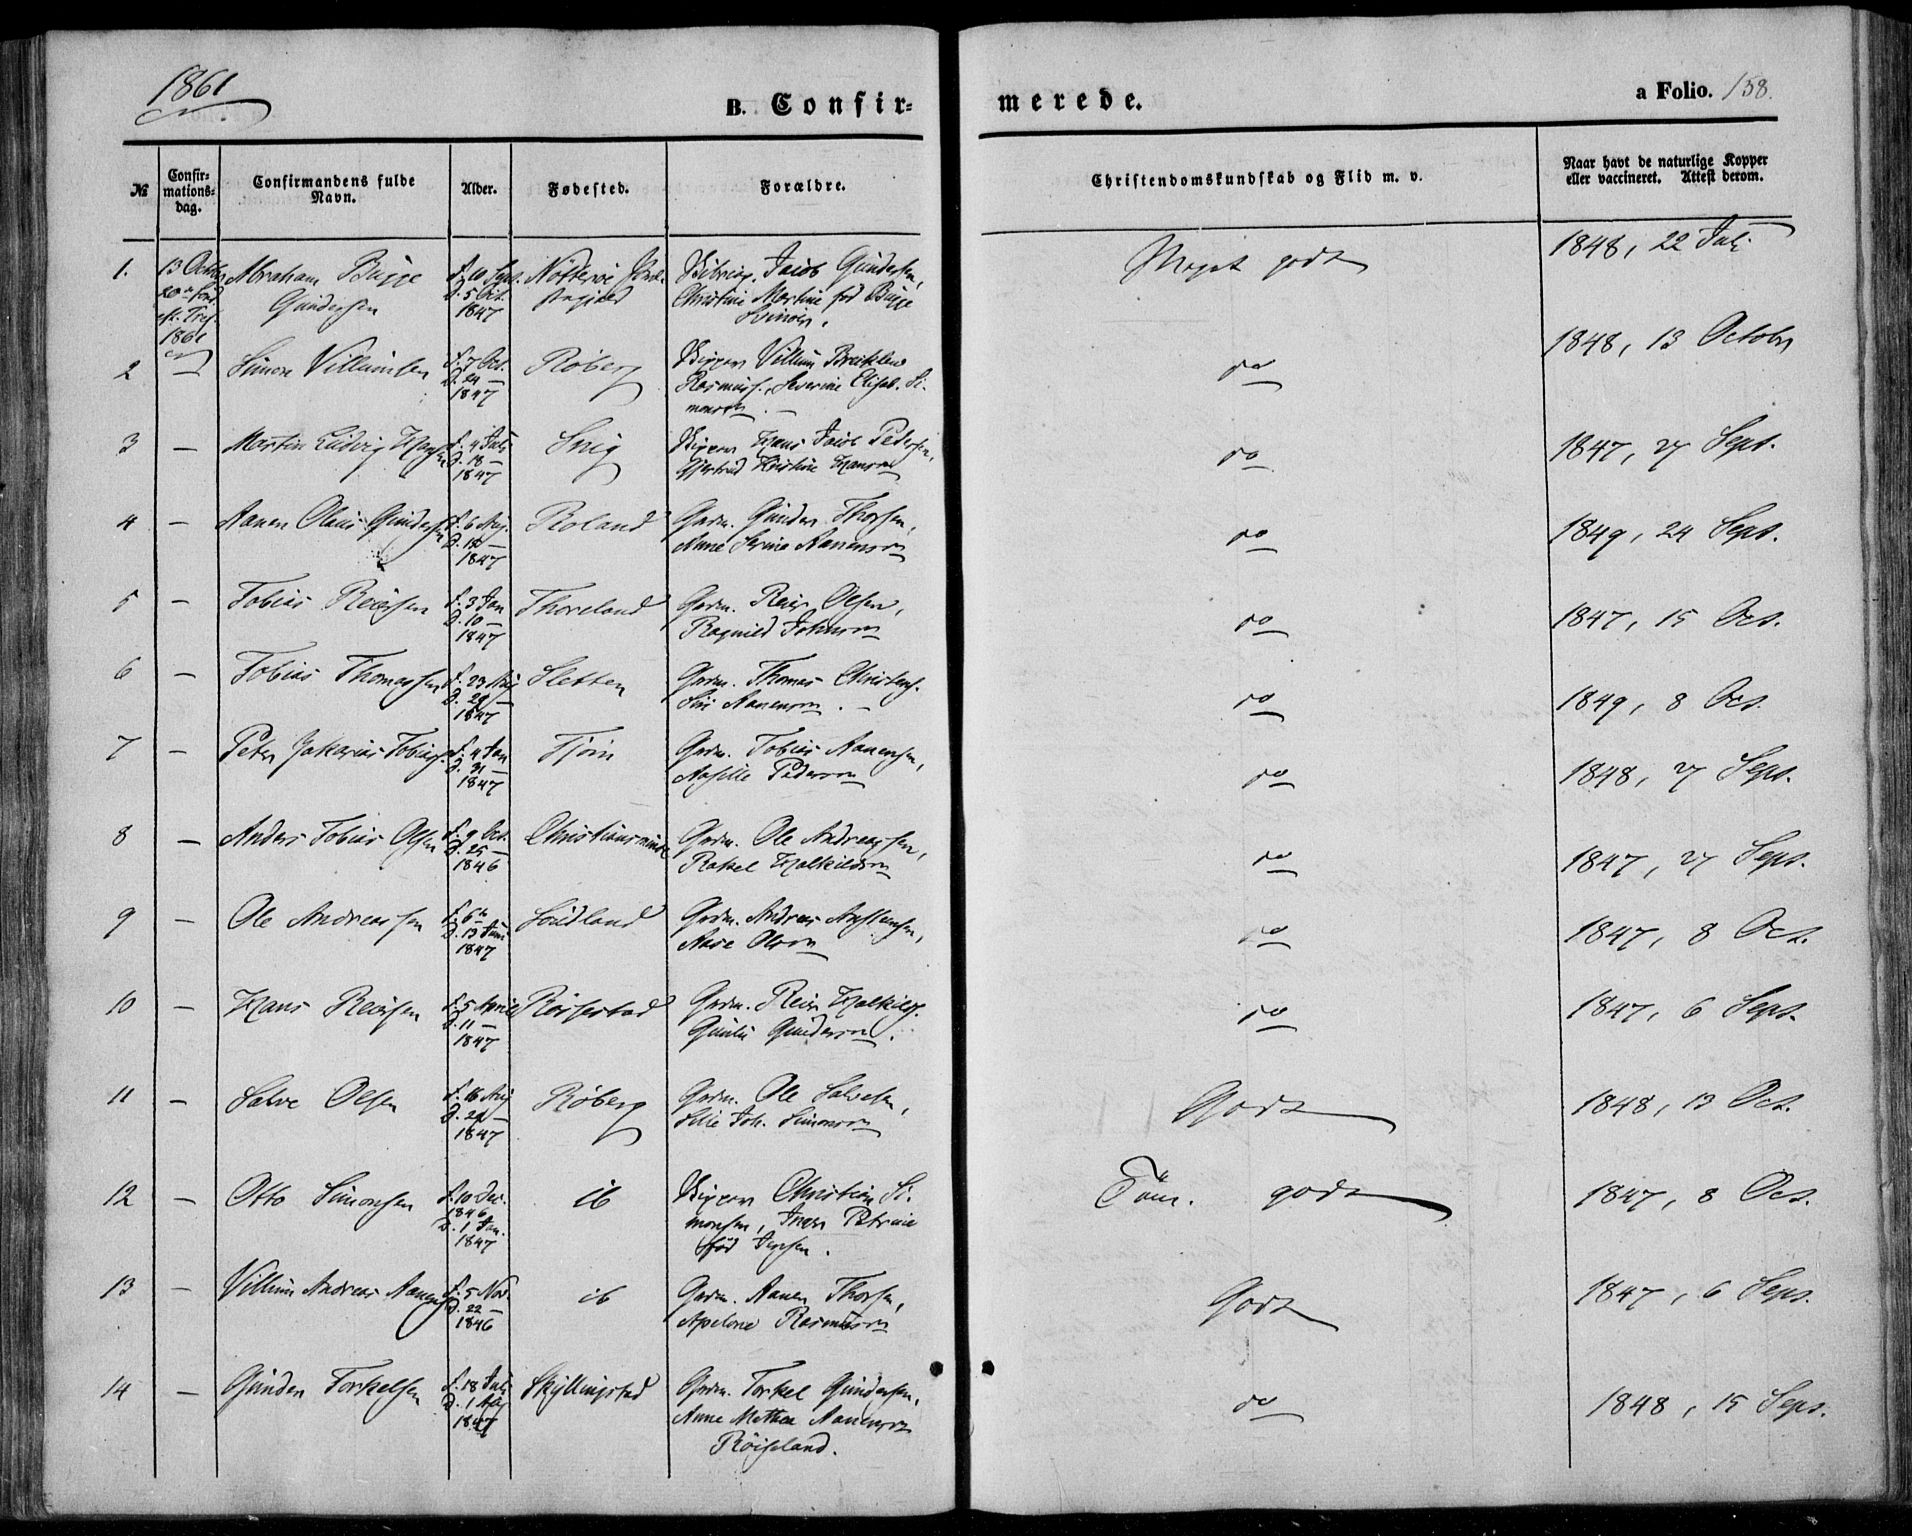 1861
B. Confir- merede. a Folio. 158.
№ Confir-mations-dag. Confirmandens fulde Navn. Alder. Fødested. Forældre. Christendomskundskab og Flid m. v. Naar havt de naturlige Kopper eller vaccineret. Attest derom.
1. 13 Octbr 20de Sønd. eft. Tref. 1861 Abraham Bugge Gundersen f. 10 Sept. d. 5 Oct. 1847 Jacob Gundersen, Christine Martine fød Bugge Meget godt 1848, 22 Juli
2 — Simon Villumsen f. 7 Oct. D. 24 — 1847 Röberg Skipper Villum Rasmuss., Severine Elisab. Simonsen — do 1848, 13 October
3 — Martin Ludvig Hansen f. 4 Juli D. 18 — 1847 Snig Skipper Hans Jacob Pedersen, Kirstine do 1847, 27 Sept.
4 — Aanen Olaus Gundersen f. 6 Aug. 1847 Roland Grdm. Gunder Thorsen, Anne Serine Aanensen do 1849, 24 Sept.
5 — Tobias Reiersen f. 3 Jan D. 10 — 1847 Thoreland Grdm. Reier Olsen, Ragnild do 1847, 15 Oct.
6 — Tobias Thomassen f. 23 Aug D. 29 — 1847 Sletten Grdm. Thomas Christens. Siri Aanensen. — do 1849, 8 Oct.
7 — Peter Zakarias Tobiass. f. 4 Jan D. 31 — 1847 Tjöm Grdm. Tobias Aanensen, Assille Pedersen do 1848, 27 Sept.
8 — Anders Tobias Olsen f. 9 Oct. D. 25 — 1846 Christiansminde Grdm. Ole Andreassen, Rakel do 1847, 27 Sept.
9 — Ole Andreassen f. 6te D. 13 Juni 1847 Sudland Grdm. Andreas Olsen do 1847, 8 Oct.
10 — Hans Reiersen f. 5 April D. 11 — 1847 Röisestad Grdm. Reier Gundersen. do 1847, 6 Sept.
11 — Salve Olsen f. 16 Aug D. 29 — 1847 Röberg Grdm. Ole Salvesen, Silie Joh. Simonsen Godt 1848, 13 Oct.
12 — Otto Simonsen f. 10 Dec. 1846 D. 1 Jan. 1847 ib Skipper Christian Simonsen, Inger Petrine fød Jensen. Tem. godt 1847, 8 Oct.
13 — Villum Andreas Aanens. f. 5 Nov. D. 22 — 1846 ib Grdm. Aanen Thorsen, Apelone Rasmussen Godt 1847, 6 Sept.
14 — Gunder Torkelsen f. 18 Juli D. 1 Aug 1847 Skyllingstad Grdm. Torkel Gundersen, Anne Mathea Aanensen Röiseland. do 1848, 15 Sept.